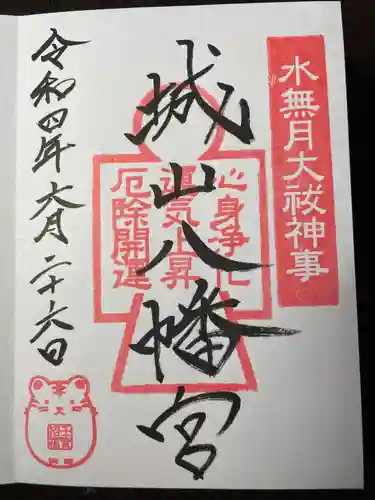 水無月大祓神事
心身浄化
運気上昇
厄除開運
城山八幡宮
令和四年六月二十六日